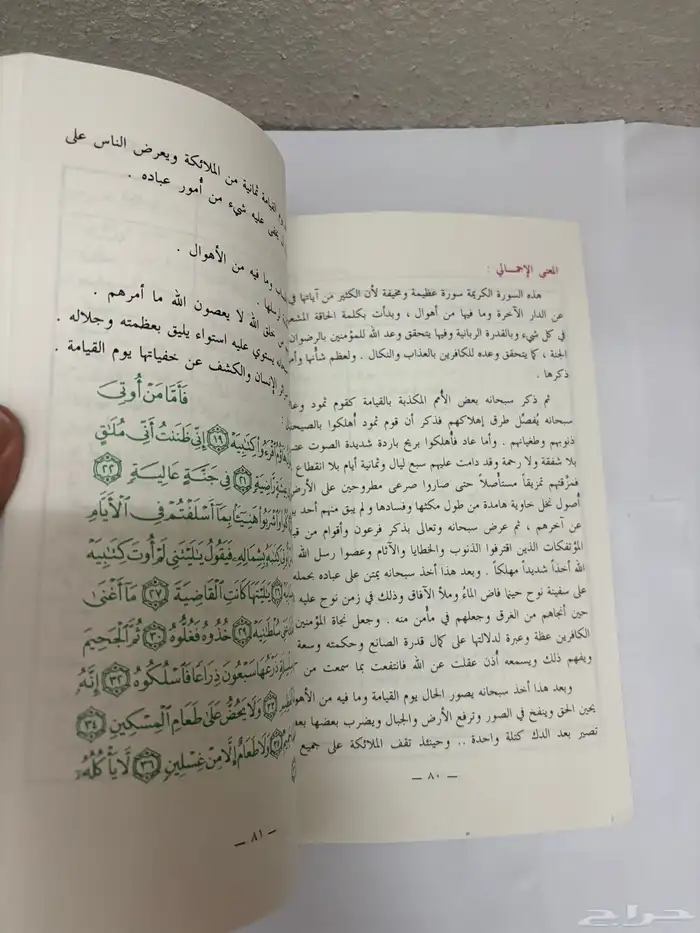 المعنى الإجمالي :
هذه السورة الكريمة سورة عظيمة ومخيفة لأن الكثير من آياتها في
عن الدار الآخرة وما فيها من أهوال ، وبدأت بكلمة الحاقة
في كل شيء وبالقدرة الربانية وفيها يتحقق وعد الله للمؤمنين بالرضوان
الجنة ، كما يتحقق وعده للكافرين بالعذاب والنكال . ولعظم شأنها
ذكرها .
ثم ذكر سبحانه بعض الأمم المكذبة بالقيامة كقوم ثمود
سبحانه يُفصِّل طرق إهلاكهم فذكر أن قوم ثمود أُهلكوا بالصيحة
ذنوبهم وطغيانهم . وأما عاد فأهلكوا بريح باردة شديدة الصوت
بلا شفقة ولا رحمة وقد دامت عليهم سبع ليال وثمانية أيام بلا انقطاع
فمزّقتهم تمزيقاً مستأصلاً حتى صاروا صرعى مطروحين على الأرض
أصول نخل خاوية هامدة من طول مكثها وفسادها ولم يبق منهم أحد
عن آخرهم ، ثم عرض سبحانه وتعالى بذكر فرعون وأقوام من
المؤتفكات الذين اقترفوا الذنوب والخطايا والآثام وعصوا رسل الله
الله أخذاً شديداً مهلكاً . وبعد هذا أخذ سبحانه يمتن على عباده بحمله
على سفينة نوح حينما فاض الماءُ وملأ الآفاق وذلك في زمن نوح عليه
حين أنجاهم من الغرق وجعلهم في مأمن منه . وجعل نجاة المؤمنين
الكافرين عظة وعبرة لدلالتها على كمال قدرة الصانع وحكمته وسعة
ويفهم ذلك ويسمعه أذن عقلت عن الله فانتفعت بما سمعت من
وبعد هذا أخذ سبحانه يصور الحال يوم القيامة وما فيه من
يحين الحق وينفخ في الصور وترفع الأرض والجبال ويضرب بعضها
تصير بعد الدك كتلة واحدة .. وحينئذ تقف الملائكة على جميع
— ٨٠ —
القيامة ثمانية من الملائكة ويعرض الناس على
يخفى عليه شيء من أمور عباده .
وما فيه من الأهوال .
خلق الله لا يعصون الله ما أمرهم .
يستوي عليه استواء يليق بعظمته وجلاله .
الإنسان والكشف عن خفياتها يوم القيامة .
فَأَمَّا مَنْ أُوتِيَ
ٱقْرَءُوا۟ كِتَٰبِيَهْ ١٩ إِنِّى ظَنَنتُ أَنِّى مُلَٰقٍ
رَّاضِيَةٍ ٢١ فِى جَنَّةٍ عَالِيَةٍ ٢٢
وَٱشْرَبُوا۟ هَنِيٓـًٔۢا بِمَآ أَسْلَفْتُمْ فِى ٱلْأَيَّامِ
كِتَٰبَهُۥ بِشِمَالِهِۦ فَيَقُولُ يَٰلَيْتَنِى لَمْ أُوتَ كِتَٰبِيَهْ
يَٰلَيْتَهَا كَانَتِ ٱلْقَاضِيَةَ ٢٧ مَآ أَغْنَىٰ
سُلْطَٰنِيَهْ ٢٩ خُذُوهُ فَغُلُّوهُ ٣٠ ثُمَّ ٱلْجَحِيمَ
ذَرْعُهَا سَبْعُونَ ذِرَاعًا فَٱسْلُكُوهُ ٣٢ إِنَّهُۥ
٣٣ وَلَا يَحُضُّ عَلَىٰ طَعَامِ ٱلْمِسْكِينِ ٣٤
وَلَا طَعَامٌ إِلَّا مِنْ غِسْلِينٍ ٣٦ لَّا يَأْكُلُهُۥٓ
— ٨١ —
حراج